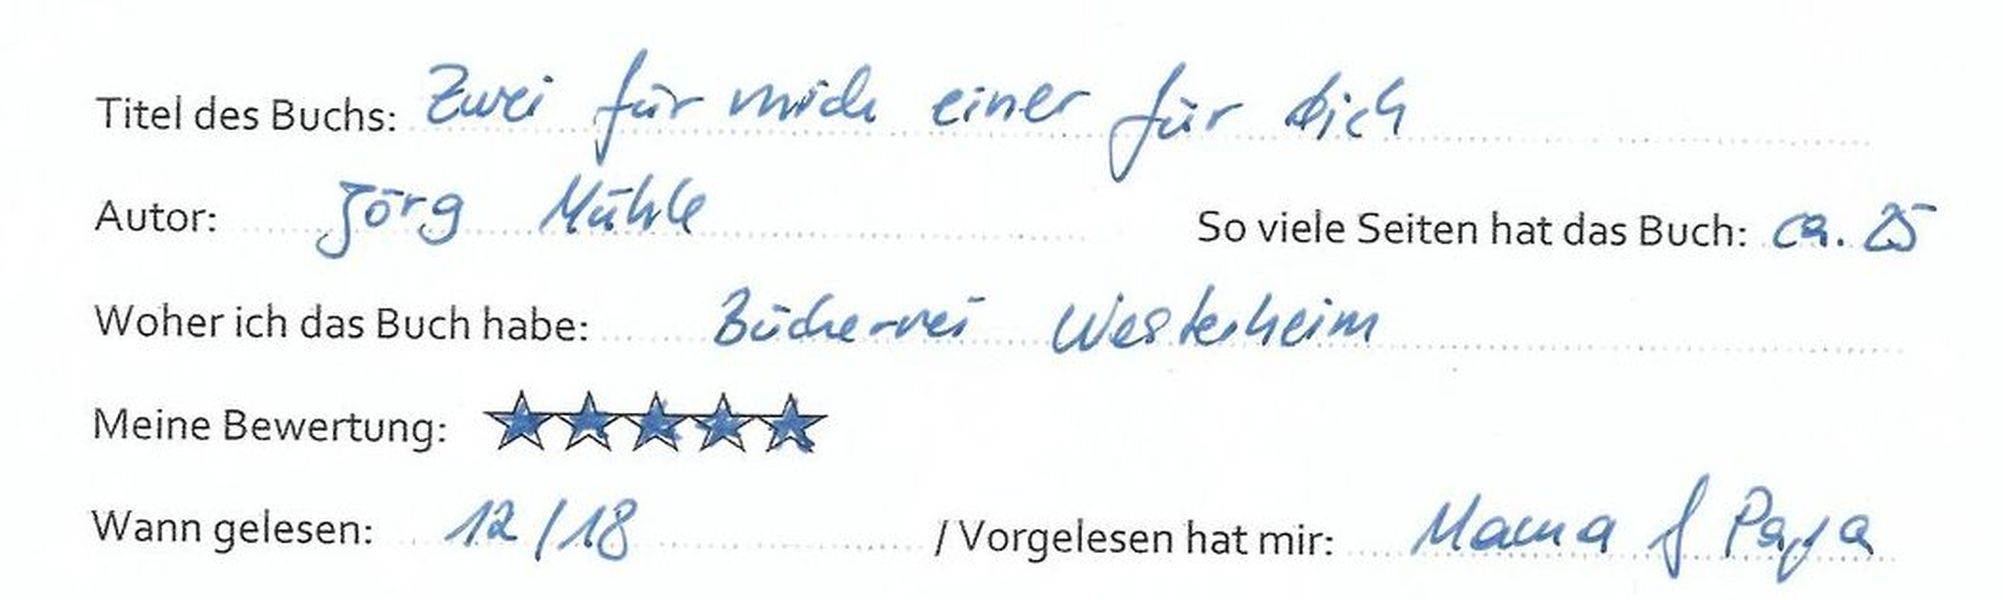 Titel des Buchs: Zwei für mich einer für dich
Autor: Jörg Mühle So viele Seiten hat das Buch: ca. 25
Woher ich das Buch habe: Bücherei Westerheim
Meine Bewertung: ★★★★★
Wann gelesen: 12/18 / Vorgelesen hat mir: Mama & Papa